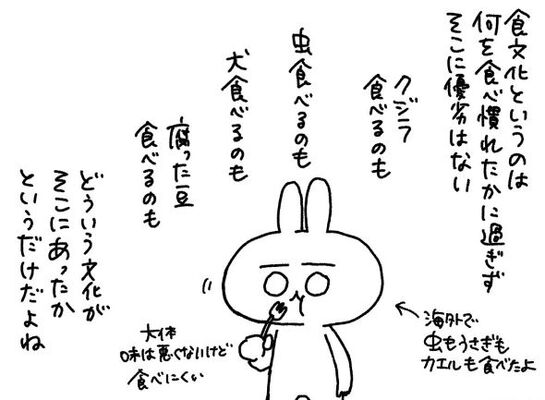 食文化というのは
何を食べ慣れたかに過ぎず
そこに優劣はない
クジラ
食べるのも
虫食べるのも
犬食べるのも
腐った豆
食べるのも
どういう文化が
そこにあったか
というだけだよね
海外で
虫もうさぎも
カエルも食べたよ
大体
味は悪くないけど
食べにくい